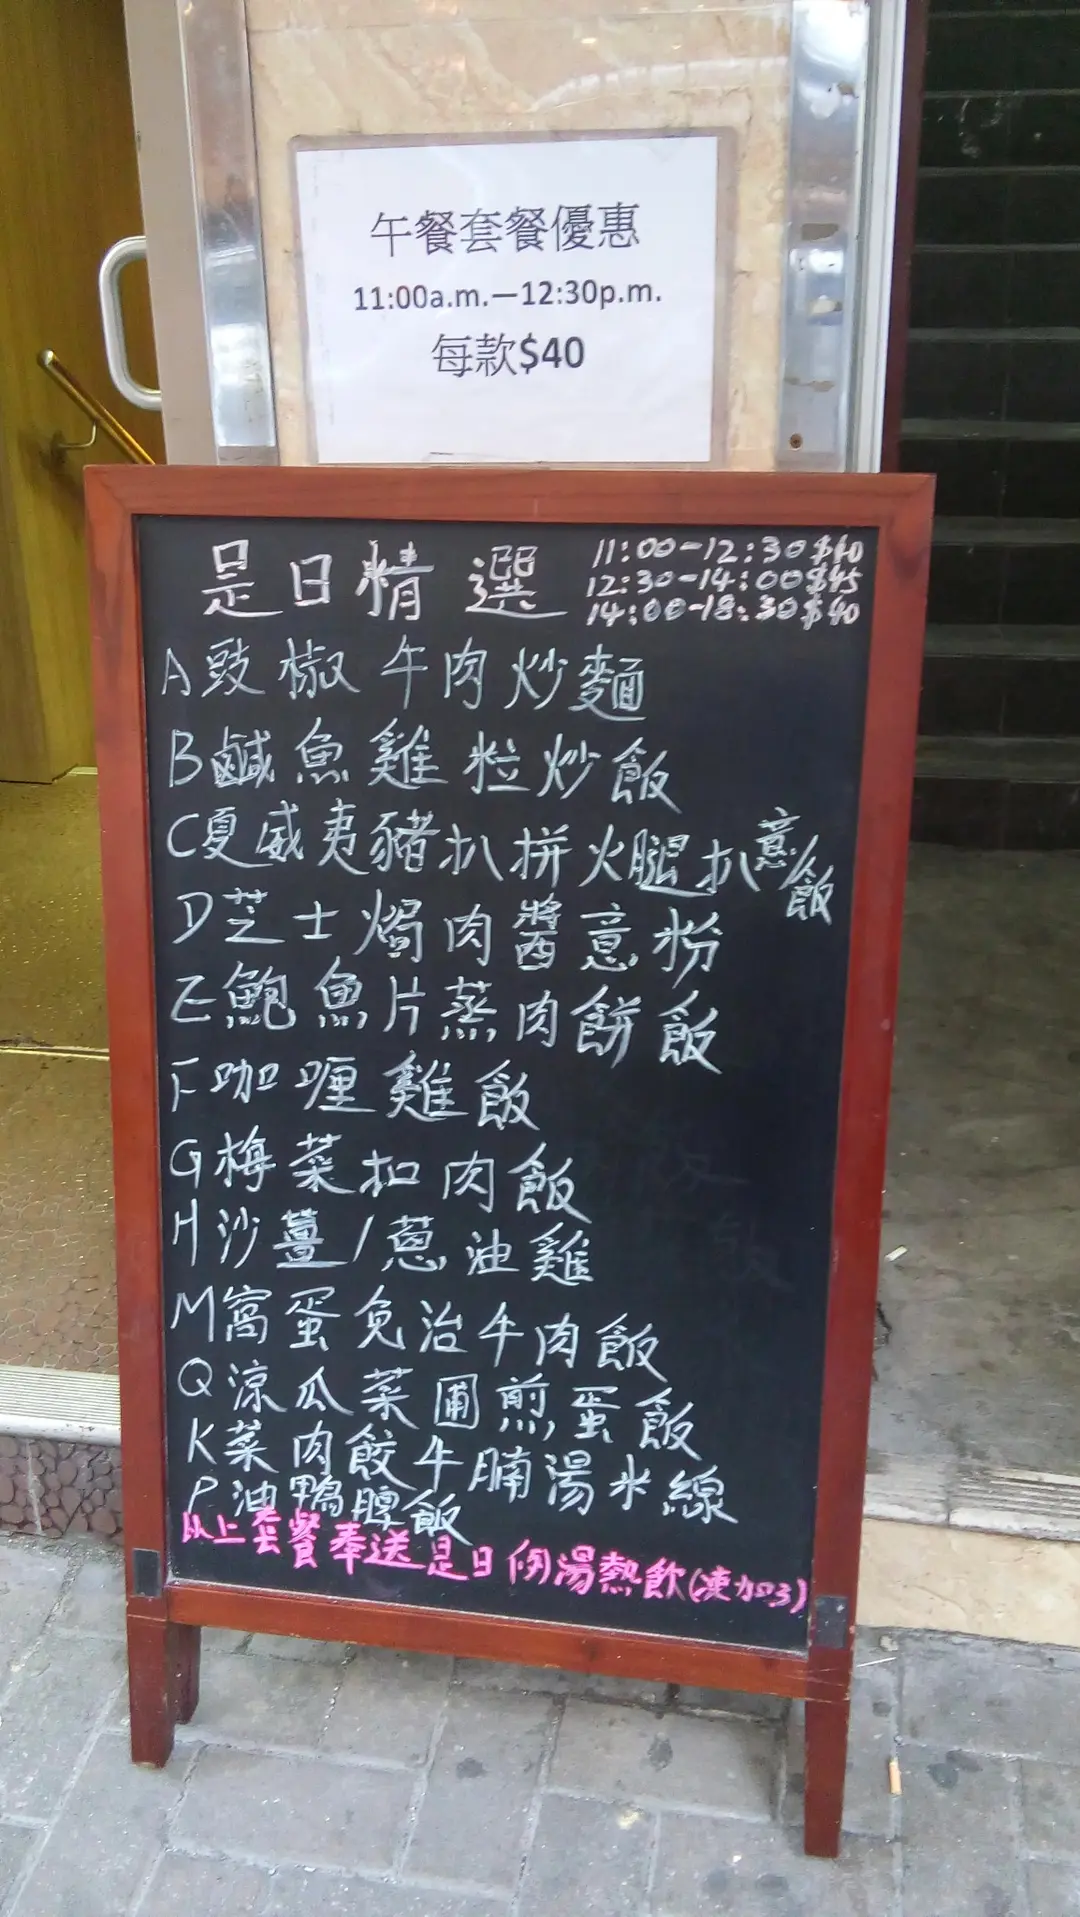 午餐套餐優惠
11:00a.m.—12:30p.m.
每款$40
是日精選
11:00-12:30$40
12:30-14:00$45
14:00-18:30$40
A豉椒牛肉炒麵
B鹹魚雞粒炒飯
C夏威夷豬扒拼火腿扒意/飯
D芝士焗肉醬意粉
E鮑魚片蒸肉餅飯
F咖喱雞飯
G梅菜扣肉飯
H沙薑/蔥油雞
M窩蛋免治牛肉飯
Q涼瓜菜圃煎蛋飯
K菜肉餃牛腩湯米線
P油鴨髀飯
以上套餐奉送是日例湯熱飲(凍加3)